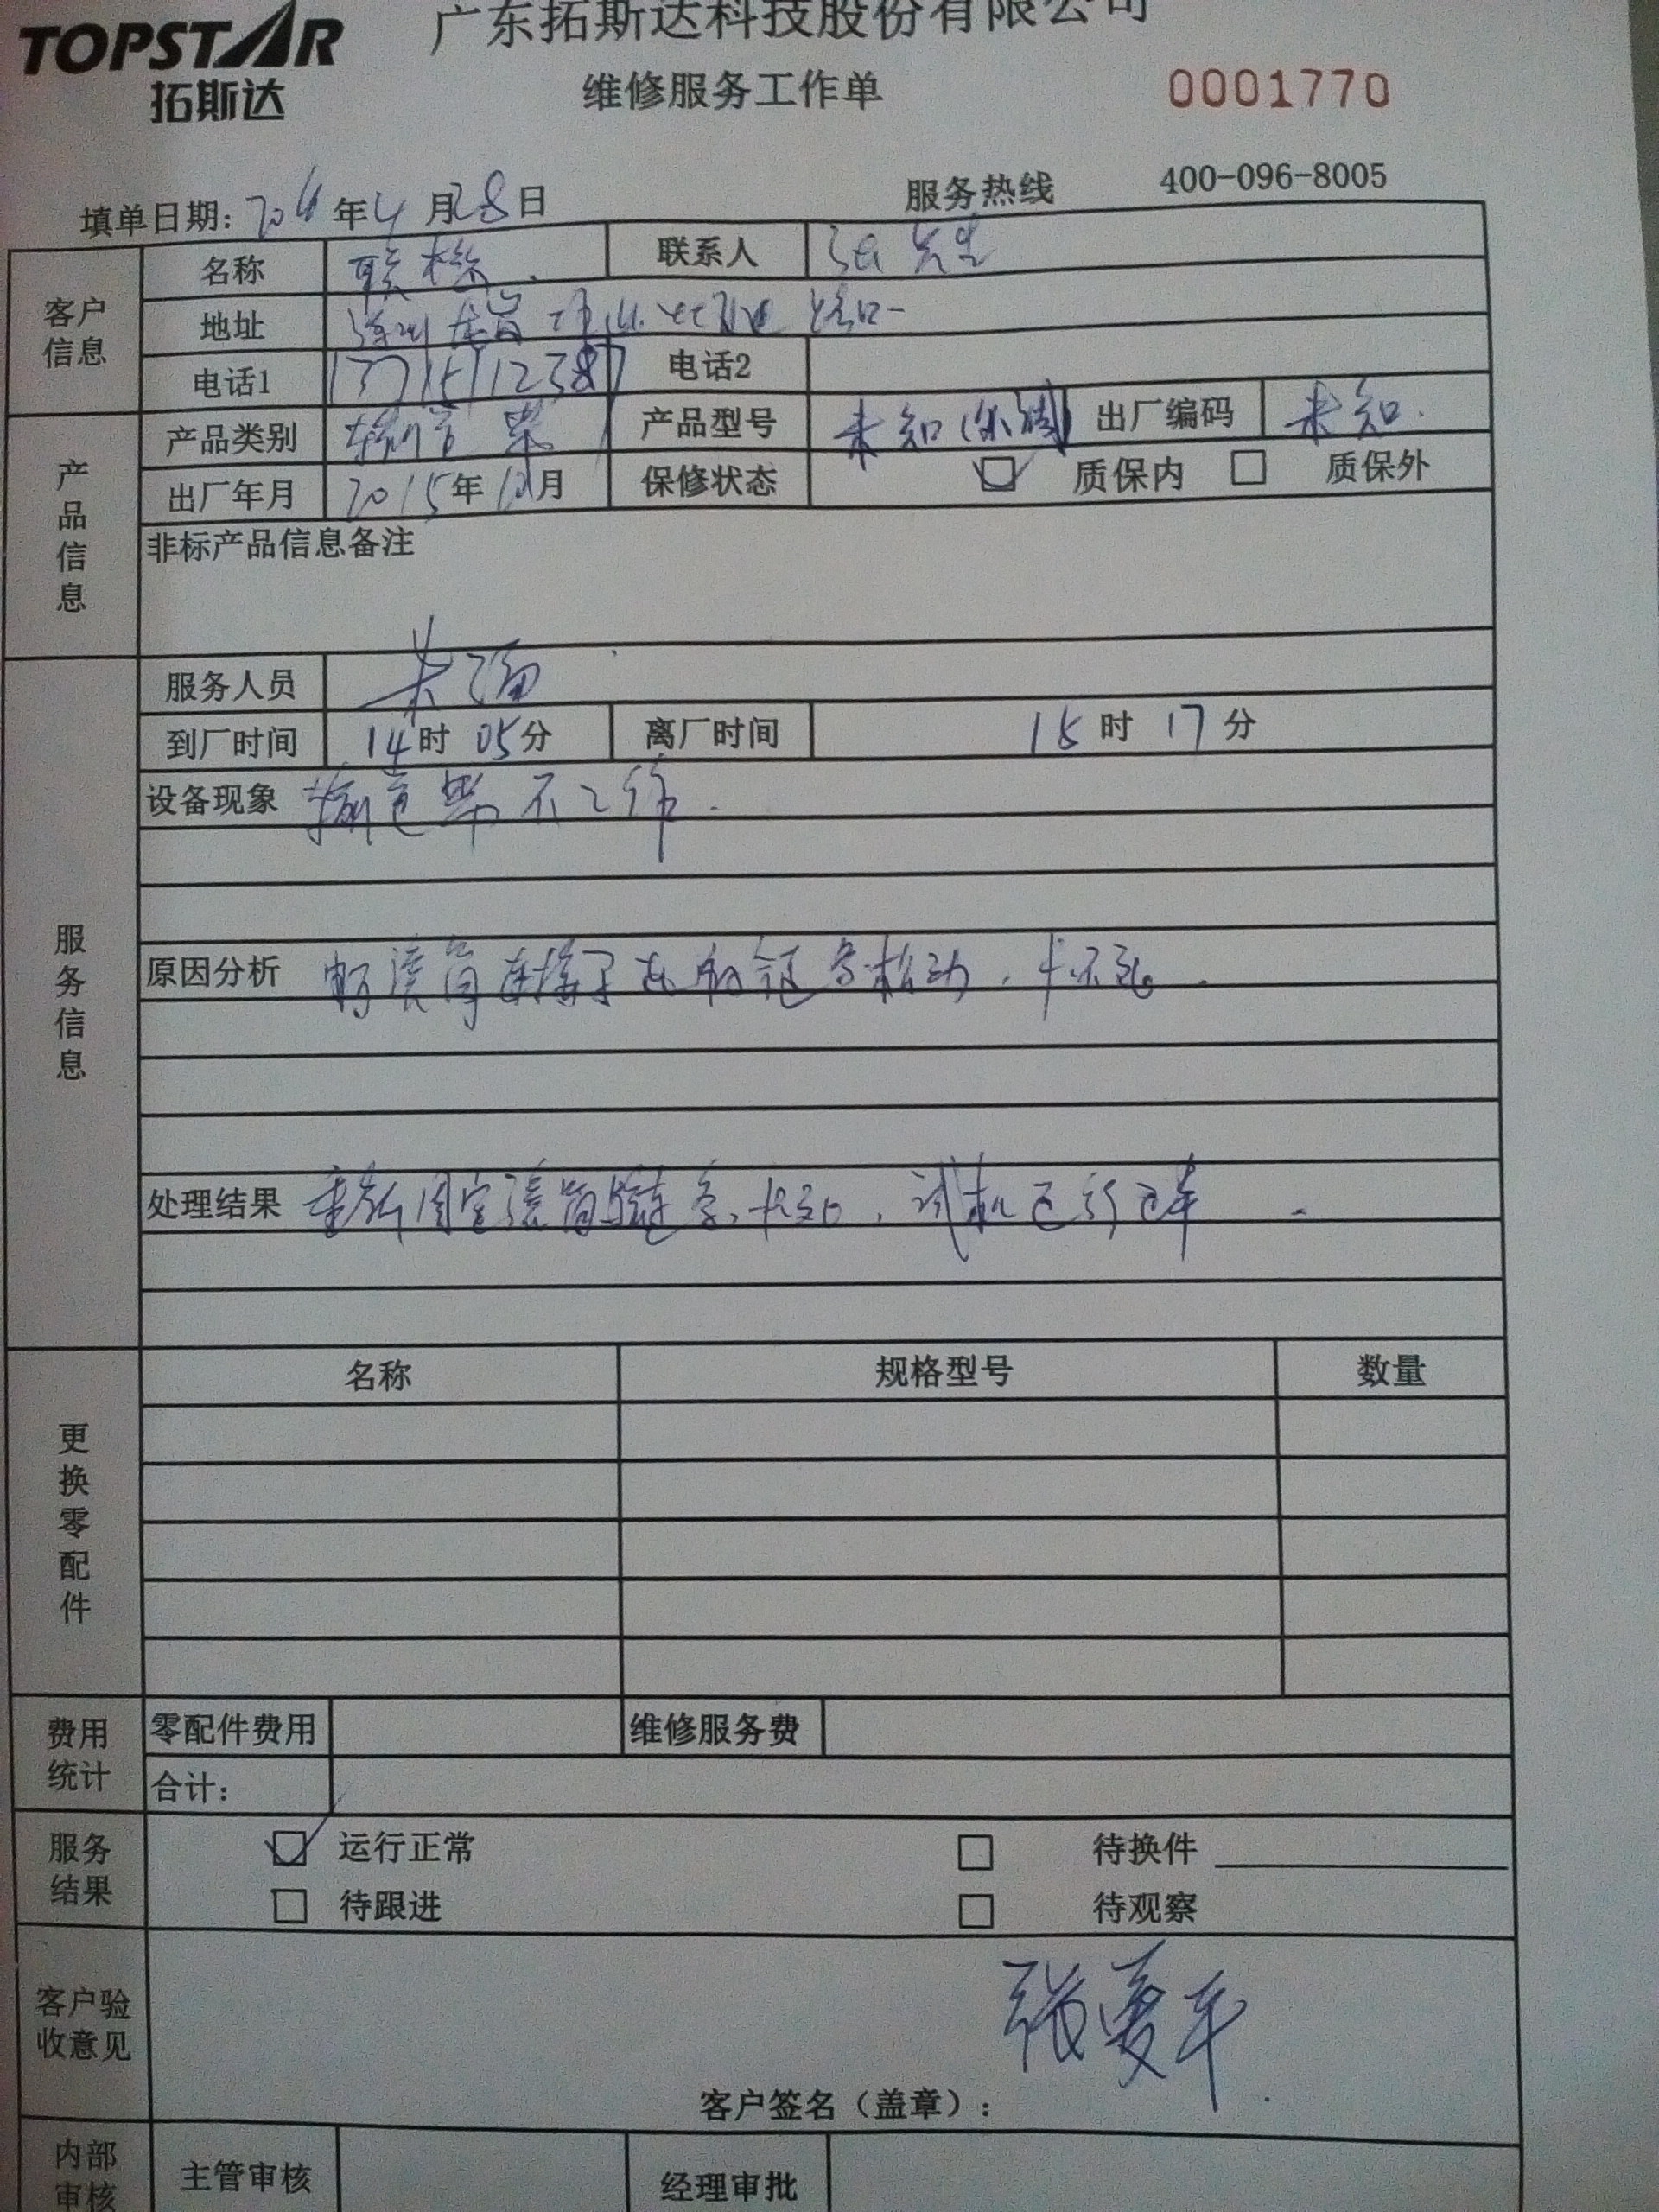 TOPSTAR
拓斯达
广东拓斯达科技股份有限公司
维修服务工作单
0001770
服务热线 400-096-8005
填单日期: 年4月28日
客户信息
名称 联 联系人 张先生
地址 深圳龙岗 路口
电话1 13715112387 电话2
产品信息
产品类别 输送带 产品型号 未知 出厂编码 未知.
出厂年月 2015年10月 保修状态 质保内 质保外
非标产品信息备注
服务信息
服务人员 朱
到厂时间 14时05分 离厂时间 15时17分
设备现象 输送带不工作.
原因分析 滚筒连接 松动,
处理结果 重新固定滚筒 , 试机运行正常.
更换零配件
名称 规格型号 数量
费用统计
零配件费用 维修服务费
合计:
服务结果
运行正常 待换件
待跟进 待观察
客户验收意见
张夏平
客户签名(盖章):
内部审核
主管审核 经理审批